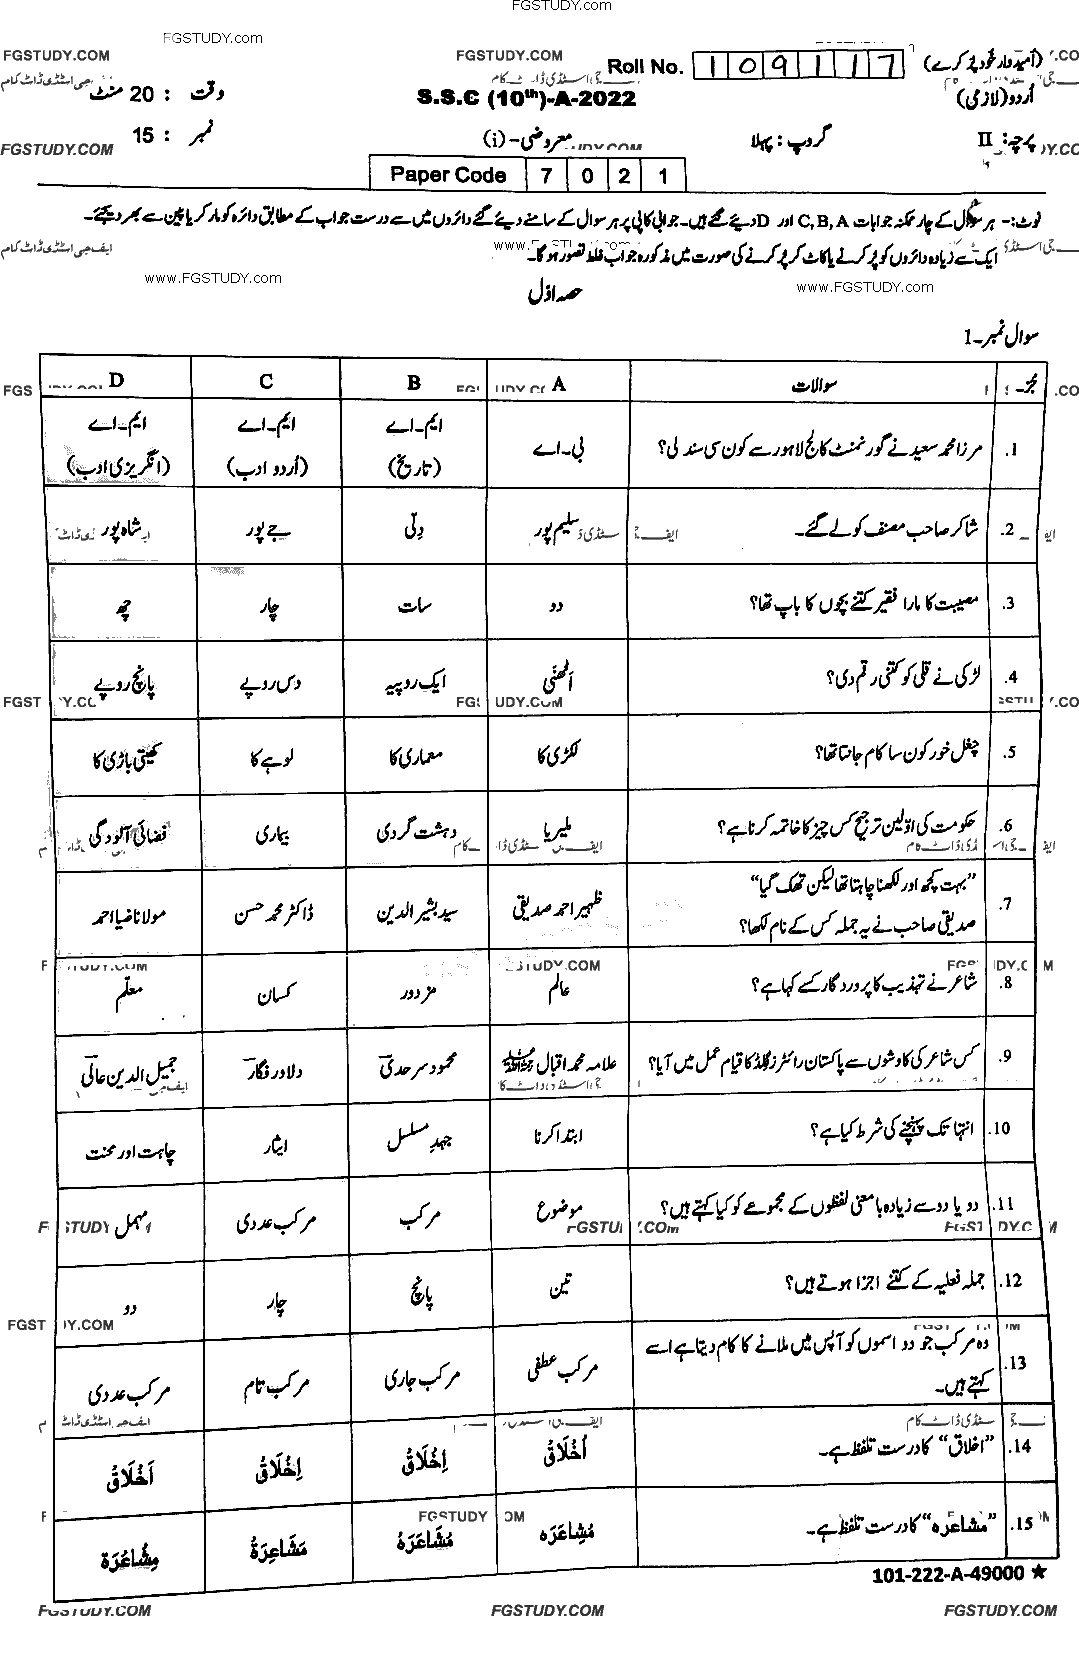 FGSTUDY.com
FGSTUDY.com
FGSTUDY.COM FGSTUDY.COM
Roll No. 109117 (اُمیدوار خود پُر کرے)
وقت : 20 منٹ S.S.C (10th)-A-2022 اُردو (لازمی)
نمبر : 15 معروضی-(i) گروپ: پہلا پرچہ: II
FGSTUDY.COM
Paper Code 7 0 2 1
نوٹ:- ہر سوال کے چار ممکنہ جوابات C, B, A اور D دیئے گئے ہیں۔ جوابی کاپی پر ہر سوال کے سامنے دیئے گئے دائروں میں سے درست جواب کے مطابق دائرہ کو مارکر یا پین سے بھر دیجئے۔
ایک سے زیادہ دائروں کو پُر کرنے یا کاٹ کر پُر کرنے کی صورت میں مذکورہ جواب غلط تصور ہو گا۔
www.FGSTUDY.com www.FGSTUDY.com
حصہ اوّل
سوال نمبر-1
جُز سوالات A B C D
1. مرزا محمد سعید نے گورنمنٹ کالج لاہور سے کون سی سند لی؟ بی-اے ایم-اے (تاریخ) ایم-اے (اُردو ادب) ایم-اے (انگریزی ادب)
2. شاکر صاحب مصنف کو لے گئے۔ سلیم پور دِلّی جے پور شاہ پور
3. مصیبت کا مارا فقیر کتنے بچوں کا باپ تھا؟ دو سات چار چھ
4. لڑکی نے قلی کو کتنی رقم دی؟ اٹھنّی ایک روپیہ دس روپے پانچ روپے
5. چغل خور کون سا کام جانتا تھا؟ لکڑی کا معماری کا لوہے کا کھیتی باڑی کا
6. حکومت کی اوّلین ترجیح کس چیز کا خاتمہ کرنا ہے؟ ملیریا دہشت گردی بیماری فضائی آلودگی
7. "بہت کچھ اور لکھنا چاہتا تھا لیکن تھک گیا"
صدیقی صاحب نے یہ جملہ کس کے نام لکھا؟ ظہیر احمد صدیقی سید بشیر الدین ڈاکٹر محمد حسن مولانا ضیا احمد
8. شاعر نے تہذیب کا پروردگار کسے کہا ہے؟ عالم مزدور کسان معلّم
9. کس شاعر کی کاوشوں سے پاکستان رائٹرز گلڈ کا قیام عمل میں آیا؟ علامہ محمد اقبال محمود سرحدی دلاور فگار جمیل الدین عالی
10. انتہا تک پہنچنے کی شرط کیا ہے؟ ابتدا کرنا جہدِ مسلسل ایثار چاہت اور محنت
11. دو یا دو سے زیادہ بامعنی لفظوں کے مجموعے کو کیا کہتے ہیں؟ موضوع مرکب مرکب عددی مہمل
12. جملہ فعلیہ کے کتنے اجزا ہوتے ہیں؟ تین پانچ چار دو
13. وہ مرکب جو دو اسموں کو آپس میں ملانے کا کام دیتا ہے اسے
کہتے ہیں۔ مرکب عطفی مرکب جاری مرکب تام مرکب عددی
14. "اخلاق" کا درست تلفظ ہے۔ اُخْلَاقْ اِخُلَاقْ اِخْلَاقْ اَخْلَاقْ
15. "مشاعرہ" کا درست تلفظ ہے۔ مُشاعَرَہ مُشَاعَرَہُ مَشَاعِرَۃُ مِشُاعَرَۃ
101-222-A-49000 ★
FGSTUDY.COM FGSTUDY.COM FGSTUDY.COM